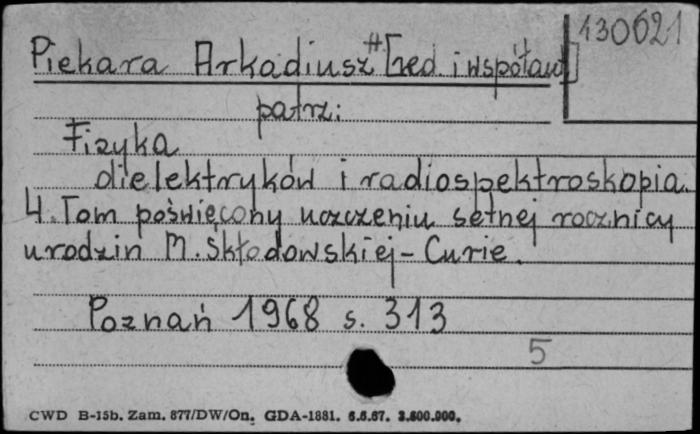 130621
Piekara Arkadiusz # [red. i współaut]
patrz:
Fizyka
dielektryków i radiospektroskopia.
4. Tom poświęcony uczczeniu setnej rocznicy
urodzin M. Skłodowskiej-Curie.
Poznań 1968 s. 313
5
CWD B-15b. Zam. 877/DW/On. GDA-1881. 6.6.67. 3.800.000.